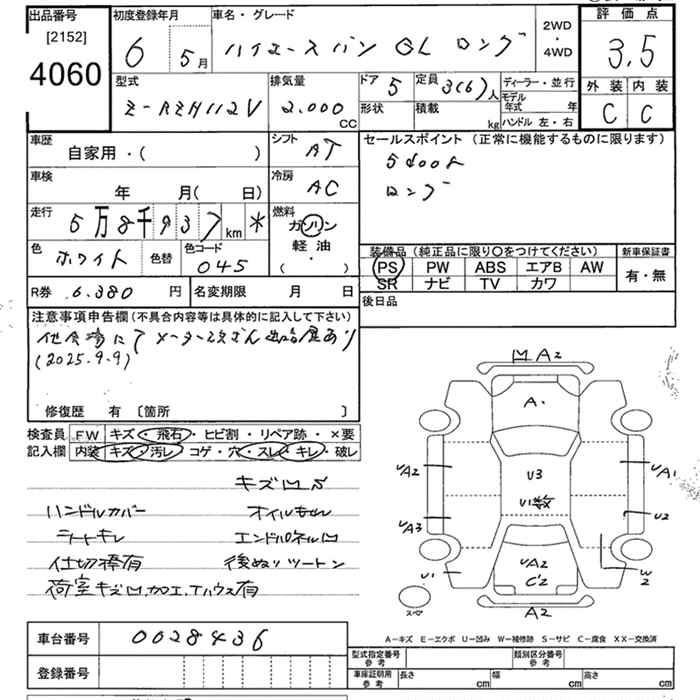 出品番号
[2152]
4060
初度登録年月
6 5月
車名・グレード
ハイエースバン GL ロング
2WD
・
4WD
評価点
3.5
外装 内装
C C
型式
Z-RZH112V
排気量
2.000
CC
ドア 5
定員 3(6)人
形状
積載
kg
ディーラー・並行
モデル年式 年
ハンドル 左・右
車歴
自家用・( )
シフト
AT
セールスポイント (正常に機能するものに限ります)
5door
ロング
車検
年 月( 日)
冷房
AC
走行
5万8千937km *
燃料
ガソリン
軽油
( ・ )
色
ホワイト
色替
色コード
045
装備品 (純正品に限り○をつけてください)
PS PW ABS エアB AW
SR ナビ TV カワ
新車保証書
有・無
R券 6.380 円
名変期限 月 日
後日品
注意事項申告欄(不具合内容等は具体的に記入して下さい)
他会場にてメーター改ざん出品歴あり
(2025.9.9)
修復歴 有 〔箇所 〕
検査員記入欄
FW キズ・飛石・ヒビ割・リペア跡・×要
内装 キズ・汚レ・コゲ・穴・スレ・キレ・破レ
キズUS
ハンドルカバー オイルもれ
シートキレ エンドパネルU
仕切棒有 後ぬりツートン
荷室キズU.加工.Tハウス有
車台番号 0028436
登録番号
A2
A・
U3
U1数
UA2
UA3
U1
UA1
U2
W2
UA2
C2
A2
スペア
A-キズ E-エクボ U-凹み W-補修跡 S-サビ C-腐食 XX-交換済
型式指定番号 参考
類別区分番号 参考
車庫証明用 参考
長さ cm 幅 cm 高さ cm